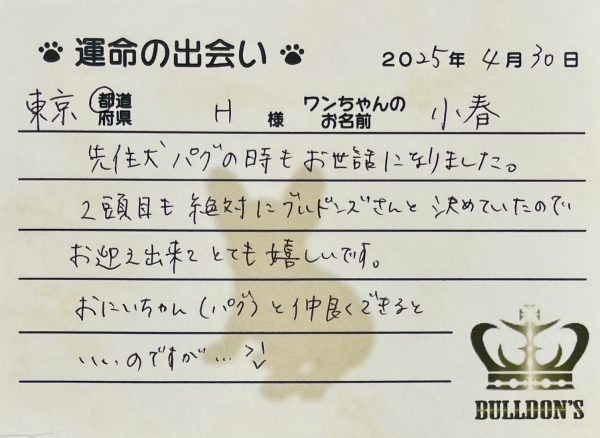 運命の出会い 2025年 4月30日
東京 都道府県 H 様 ワンちゃんのお名前 小春
先住犬パグの時もお世話になりました。
2頭目も絶対にブルドンズさんと決めていたので
お迎え出来てとても嬉しいです。
おにいちゃん(パグ)と仲良くできると
いいのですが…
BULLDON'S